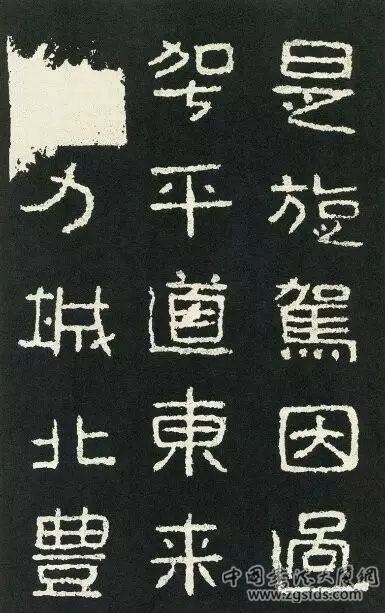 是旋駕因過
平道東来
力城北豊
中国书法大赛网
www.zgsfds.com